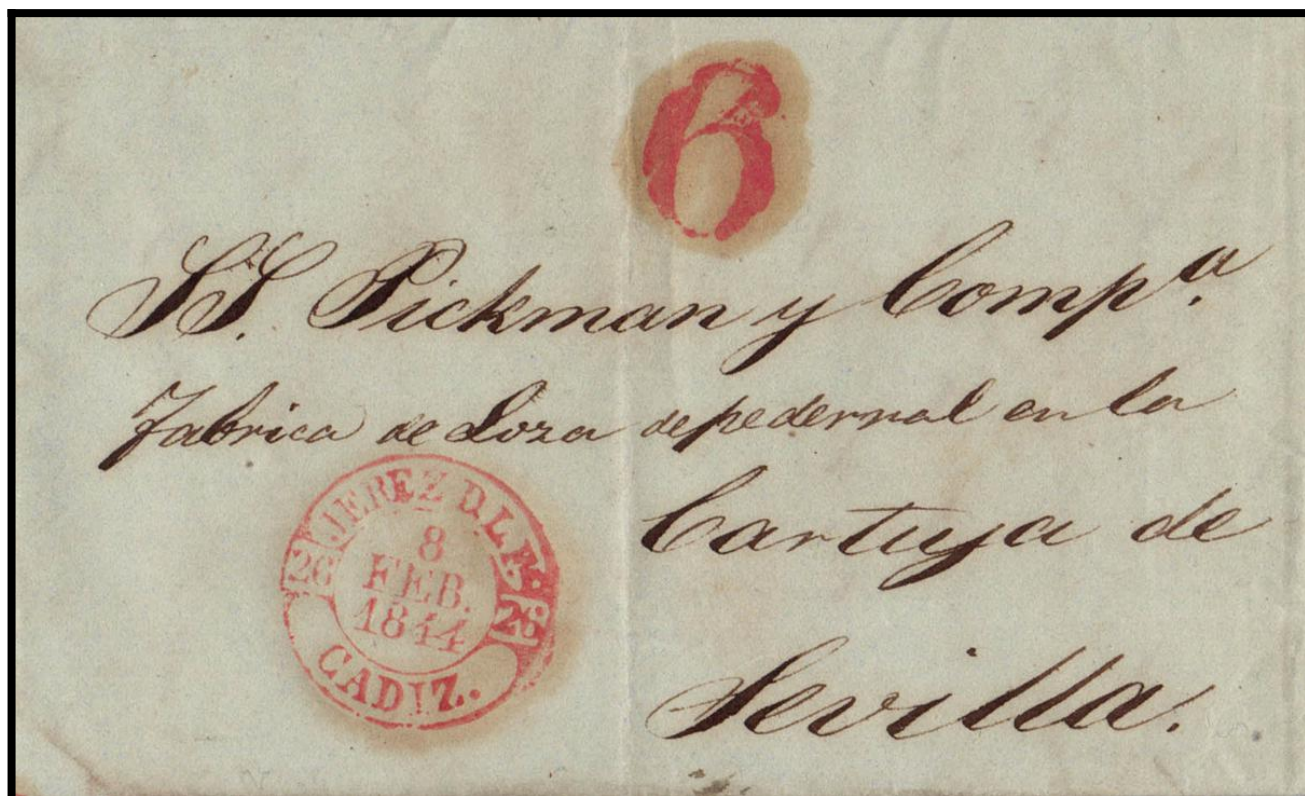 6
SS. Pickman y Comp.ª
Fabrica de Loza de pedernal en la
Cartuja de
Sevilla.
JEREZ D.L.F.
26 26
8
FEB.
1844
CADIZ.